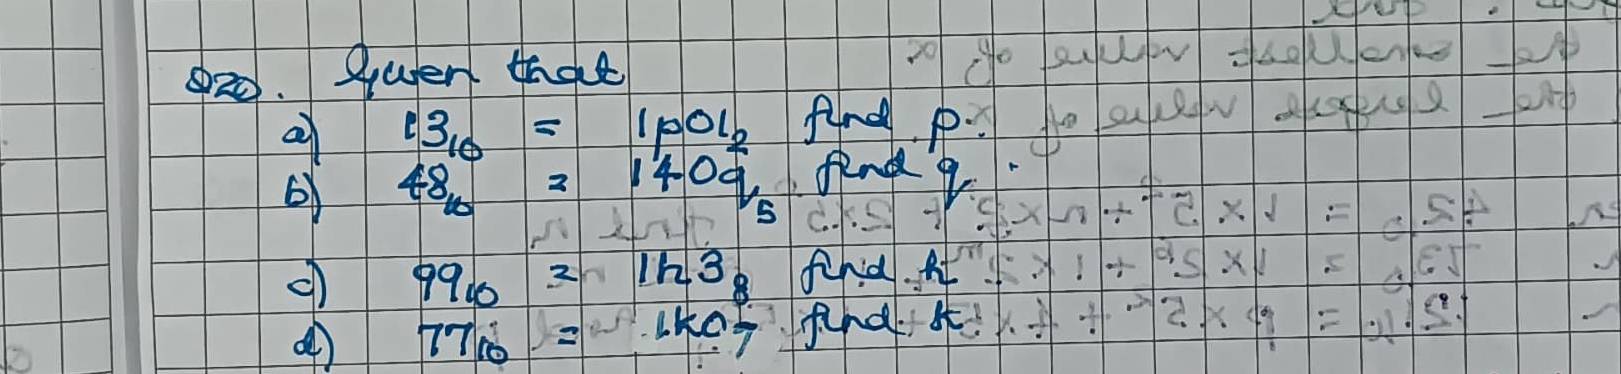 Q20. Given that
a) 13₁₀ = 1p01₂ find p.
b) 48₁₀ = 140q₅ find q.
c) 99₁₀ = 1h3₈ find h
d) 77₁₀ = 1k0₇ find k